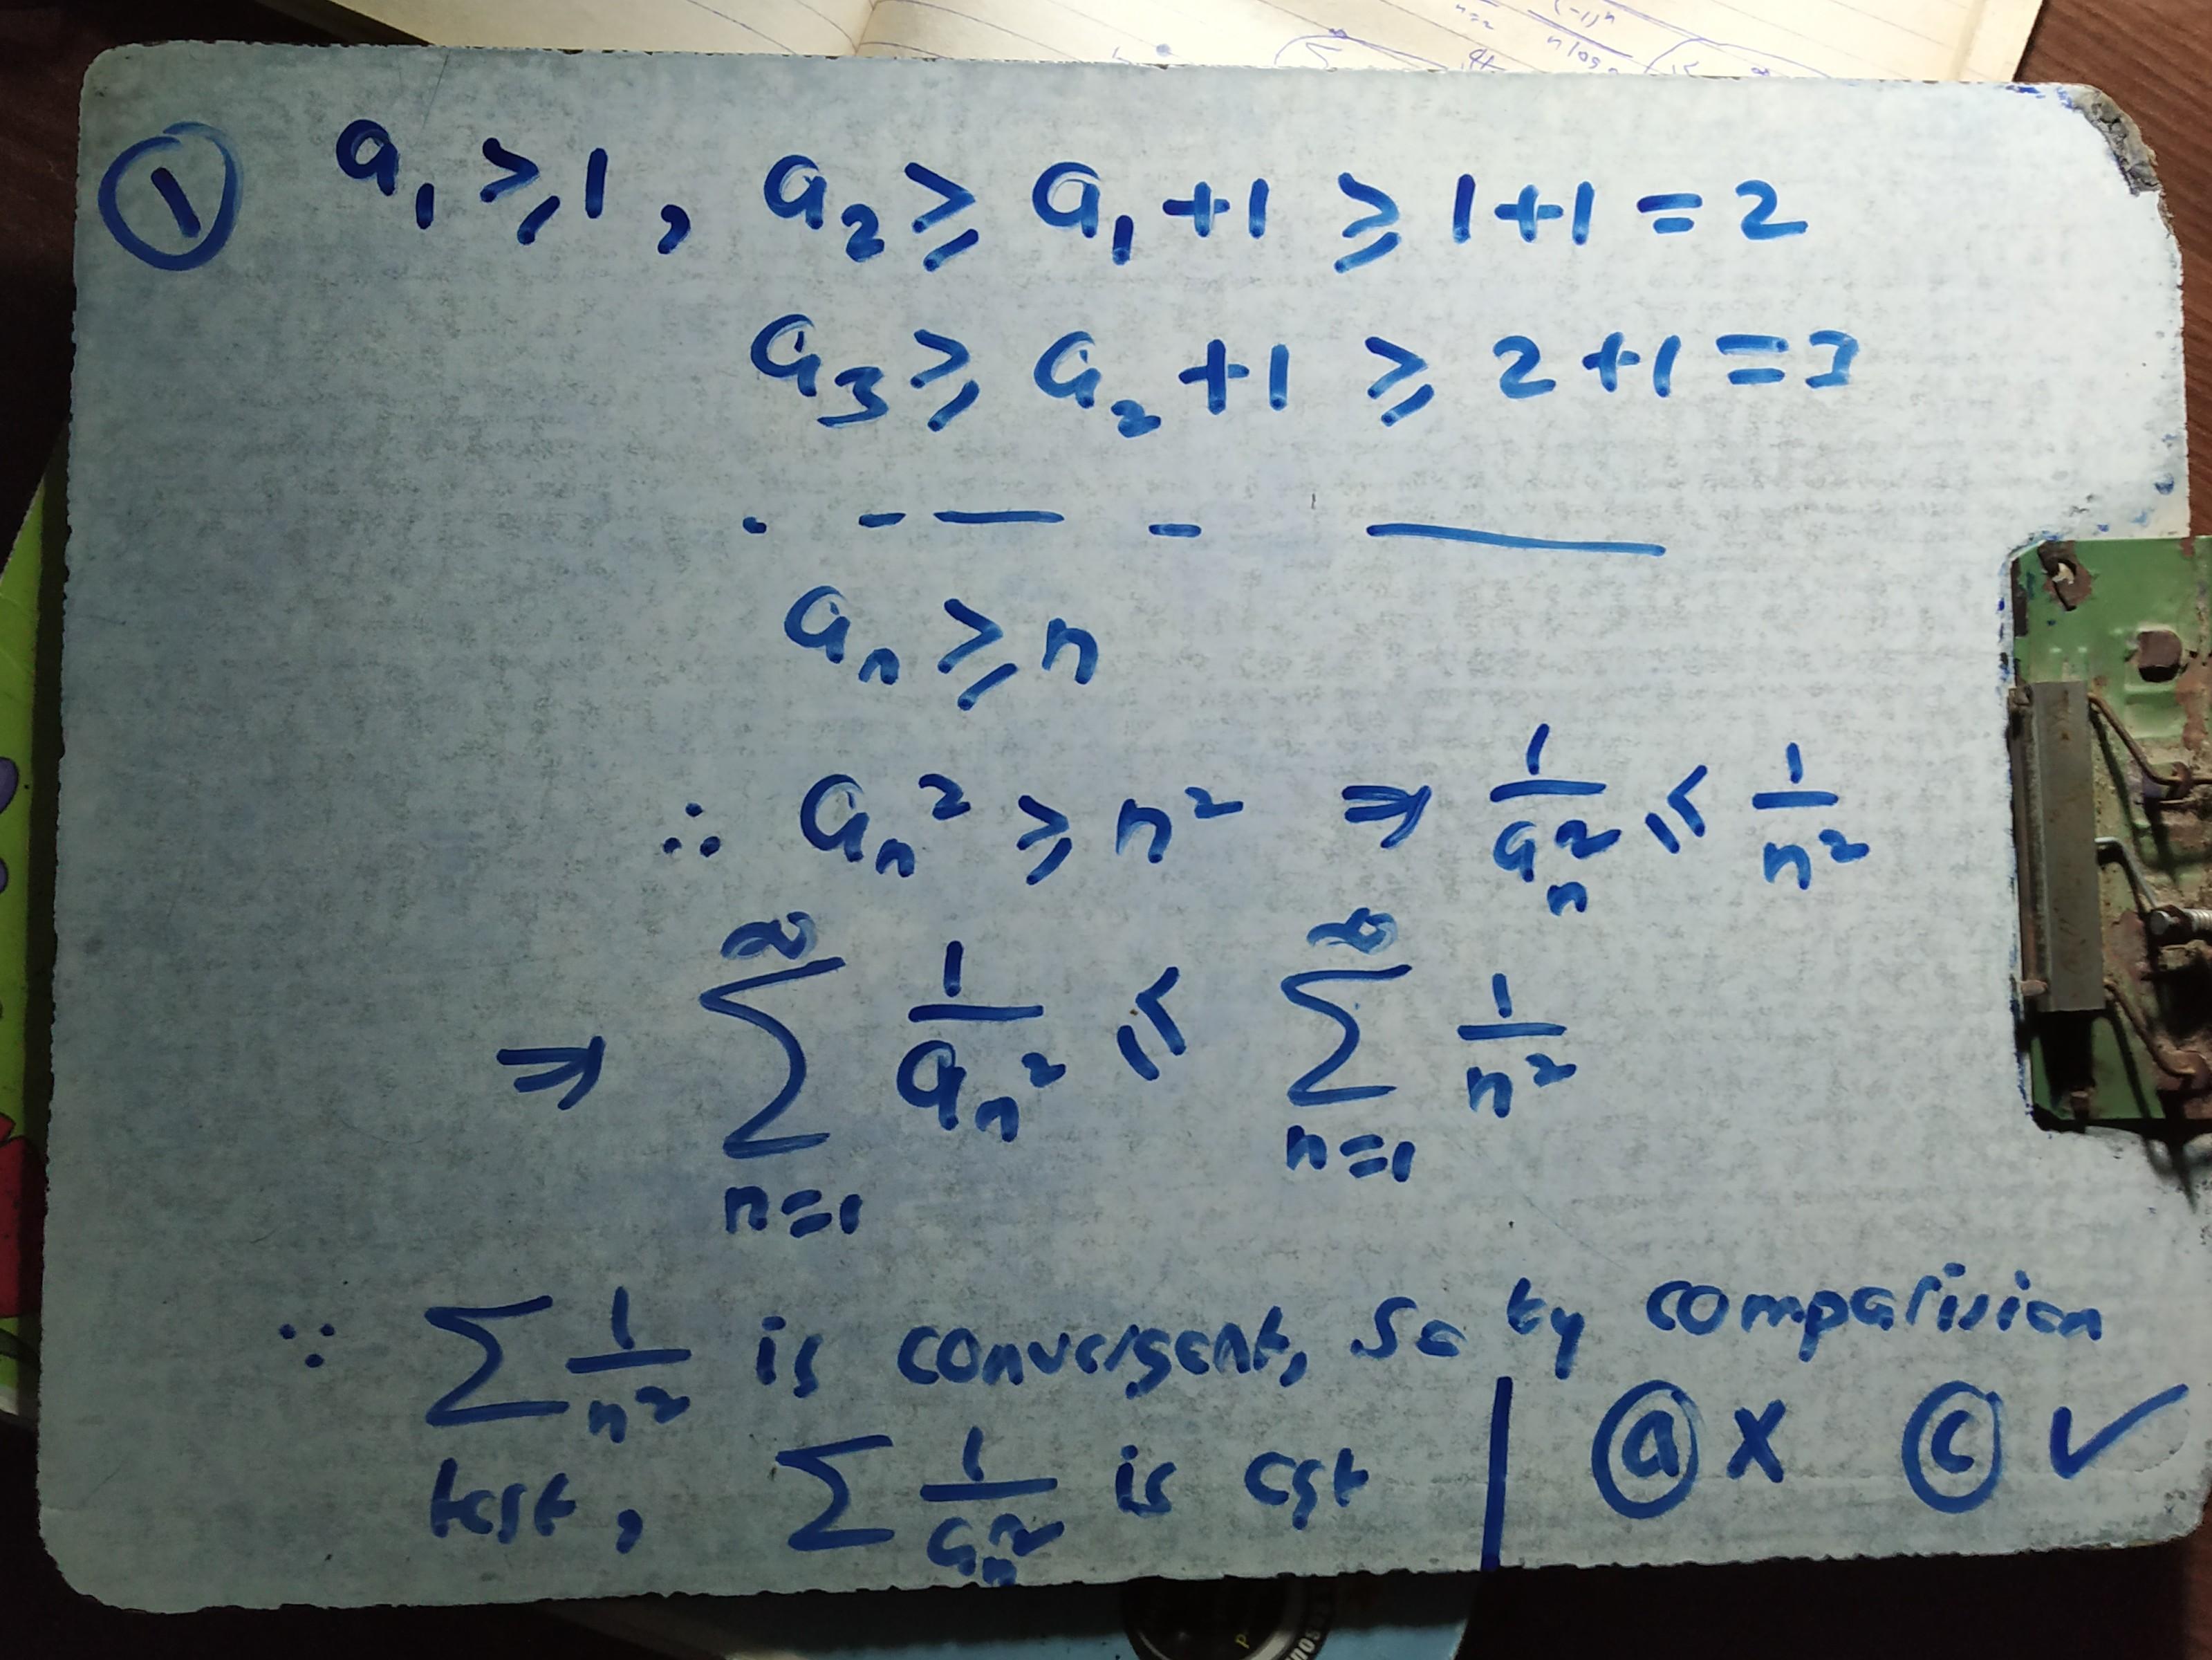 ① a₁ ≥ 1, a₂ ≥ a₁ + 1 ≥ 1 + 1 = 2
a₃ ≥ a₂ + 1 ≥ 2 + 1 = 3
. - — - —
aₙ ≥ n
∴ aₙ² ≥ n² ⇒ 1/aₙ² ≤ 1/n²
⇒ ∑_{n=1}^{∞} 1/aₙ² ≤ ∑_{n=1}^{∞} 1/n²
∵ ∑ 1/n² is convergent, So by comparision
test, ∑ 1/aₙ² is cgt | ⓐ × ⓒ ✓